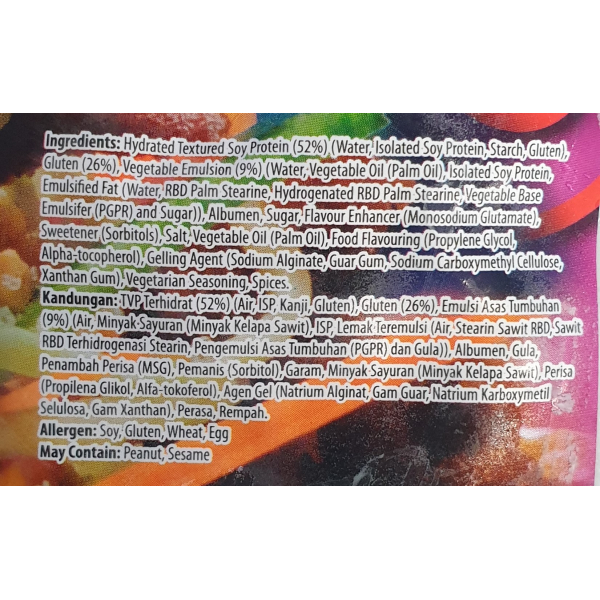 Ingredients: Hydrated Textured Soy Protein (52%) (Water, Isolated Soy Protein, Starch, Gluten),
Gluten (26%), Vegetable Emulsion (9%) (Water, Vegetable Oil (Palm Oil), Isolated Soy Protein,
Emulsified Fat (Water, RBD Palm Stearine, Hydrogenated RBD Palm Stearine, Vegetable Base
Emulsifer (PGPR) and Sugar)), Albumen, Sugar, Flavour Enhancer (Monosodium Glutamate),
Sweetener (Sorbitols), Salt, Vegetable Oil (Palm Oil), Food Flavouring (Propylene Glycol,
Alpha-tocopherol), Gelling Agent (Sodium Alginate, Guar Gum, Sodium Carboxymethyl Cellulose,
Xanthan Gum), Vegetarian Seasoning, Spices.
Kandungan: TVP Terhidrat (52%) (Air, ISP, Kanji, Gluten), Gluten (26%), Emulsi Asas Tumbuhan
(9%) (Air, Minyak Sayuran (Minyak Kelapa Sawit), ISP, Lemak Teremulsi (Air, Stearin Sawit RBD, Sawit
RBD Terhidrogenasi Stearin, Pengemulsi Asas Tumbuhan (PGPR) dan Gula)), Albumen, Gula,
Penambah Perisa (MSG), Pemanis (Sorbitol), Garam, Minyak Sayuran (Minyak Kelapa Sawit), Perisa
(Propilena Glikol, Alfa-tokoferol), Agen Gel (Natrium Alginat, Gam Guar, Natrium Karboxymetil
Selulosa, Gam Xanthan), Perasa, Rempah.
Allergen: Soy, Gluten, Wheat, Egg
May Contain: Peanut, Sesame